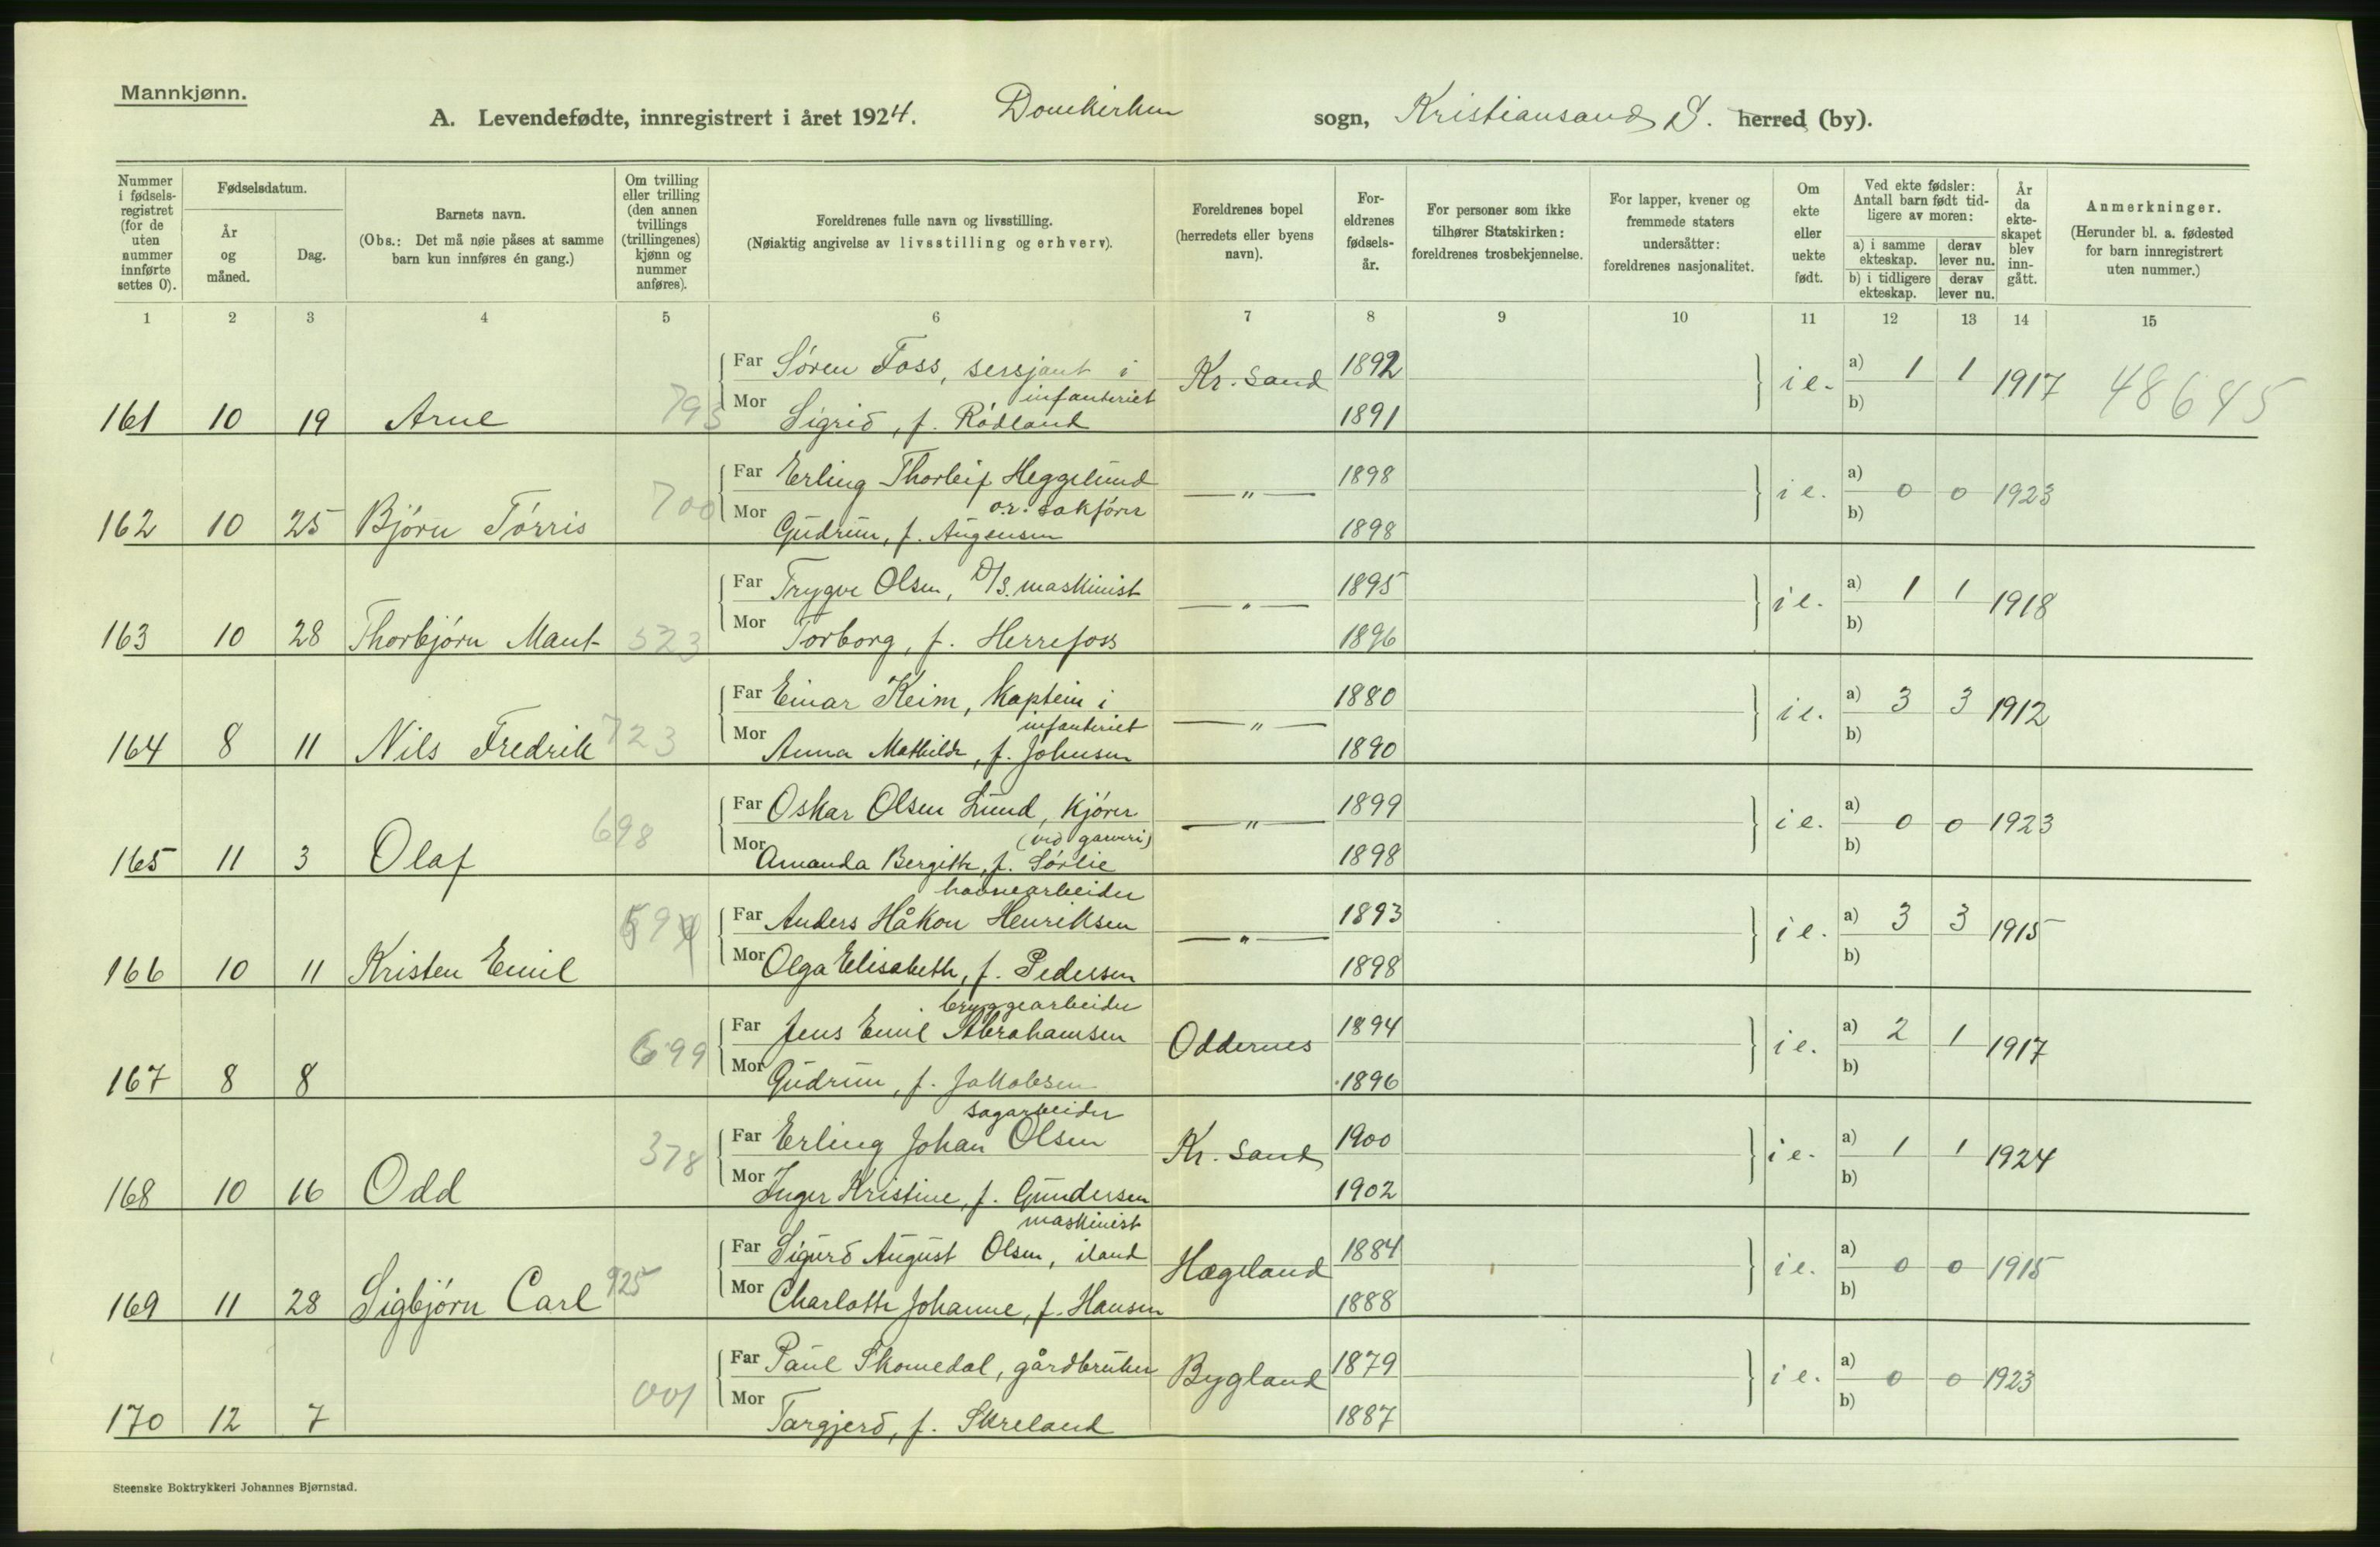 Mannkjønn.
A. Levendefødte, innregistrert i året 1924. Domkirken sogn, Kristiansand S. herred (by).
Nummer i fødselsregistret (for de uten nummer innførte settes 0).
Fødselsdatum.
År og måned.
Dag.
Barnets navn.
(Obs.: Det må nøie påses at samme barn kun innføres én gang.)
Om tvilling eller trilling (den annen tvillings (trillingenes) kjønn og nummer anføres).
Foreldrenes fulle navn og livsstilling.
(Nøiaktig angivelse av livsstilling og erhverv).
Foreldrenes bopel (herredets eller byens navn).
Foreldrenes fødselsår.
For personer som ikke tilhører Statskirken: foreldrenes trosbekjennelse.
For lapper, kvener og fremmede staters undersåtter: foreldrenes nasjonalitet.
Om ekte eller uekte født.
Ved ekte fødsler: Antall barn født tidligere av moren:
a) i samme ekteskap. derav lever nu.
b) i tidligere ekteskap. derav lever nu.
År da ekteskapet blev inngått.
Anmerkninger.
(Herunder bl. a. fødested for barn innregistrert uten nummer.)
1 2 3 4 5 6 7 8 9 10 11 12 13 14 15
Far Søren Foss, sersjant i infanteriet Kr. Sand 1892 i e. a) 1 1 1917 48645
161 10 19 Arne 795 Mor Sigrid, f. Rødland 1891 b)
Far Erling Thorleif Heggelund o.r. sakfører — " — 1898 i e. a) 0 0 1923
162 10 25 Bjørn Tørris 700 Mor Gudrun, f. Augensen 1898 b)
Far Trygve Olsen, D/S. maskinist — " — 1895 i e. a) 1 1 1918
163 10 28 Thorbjørn Mant 523 Mor Torborg, f. Herrefoss 1896 b)
Far Einar Keim, kaptein i infanteriet — " — 1880 i e. a) 3 3 1912
164 8 11 Nils Fredrik 723 Mor Anna Mathilde, f. Johnsen 1890 b)
Far Oskar Olsen Lund, kjører (ved garveri) — " — 1899 i e. a) 0 0 1923
165 11 3 Olaf 698 Mor Amanda Bergitte, f. Sørlie 1898 b)
havnearbeider
Far Anders Håkon Henriksen — " — 1893 i e. a) 3 3 1915
166 10 11 Kristen Emil Mor Olga Elisabeth, f. Pedersen 1898 b)
bryggearbeider
Far Jens Emil Abrahamsen Oddernes 1894 i e. a) 2 1 1917
167 8 8 699 Mor Gudrun, f. Jakobsen 1896 b)
sagarbeider
Far Erling Johan Olsen Kr. Sand 1900 i e. a) 1 1 1924
168 10 16 Odd 378 Mor Inger Kristine, f. Gundersen 1902 b)
maskinist
Far Sigurd August Olsen, iland Hægeland 1884 i e. a) 0 0 1915
169 11 28 Sigbjørn Carl 925 Mor Charlotte Johanne, f. Hansen 1888 b)
Far Paul Skomedal, gårdbruker Bygland 1879 i e. a) 0 0 1923
170 12 7 001 Mor Targjerd, f. Skreland 1887 b)
Steenske Boktrykkeri Johannes Bjørnstad.